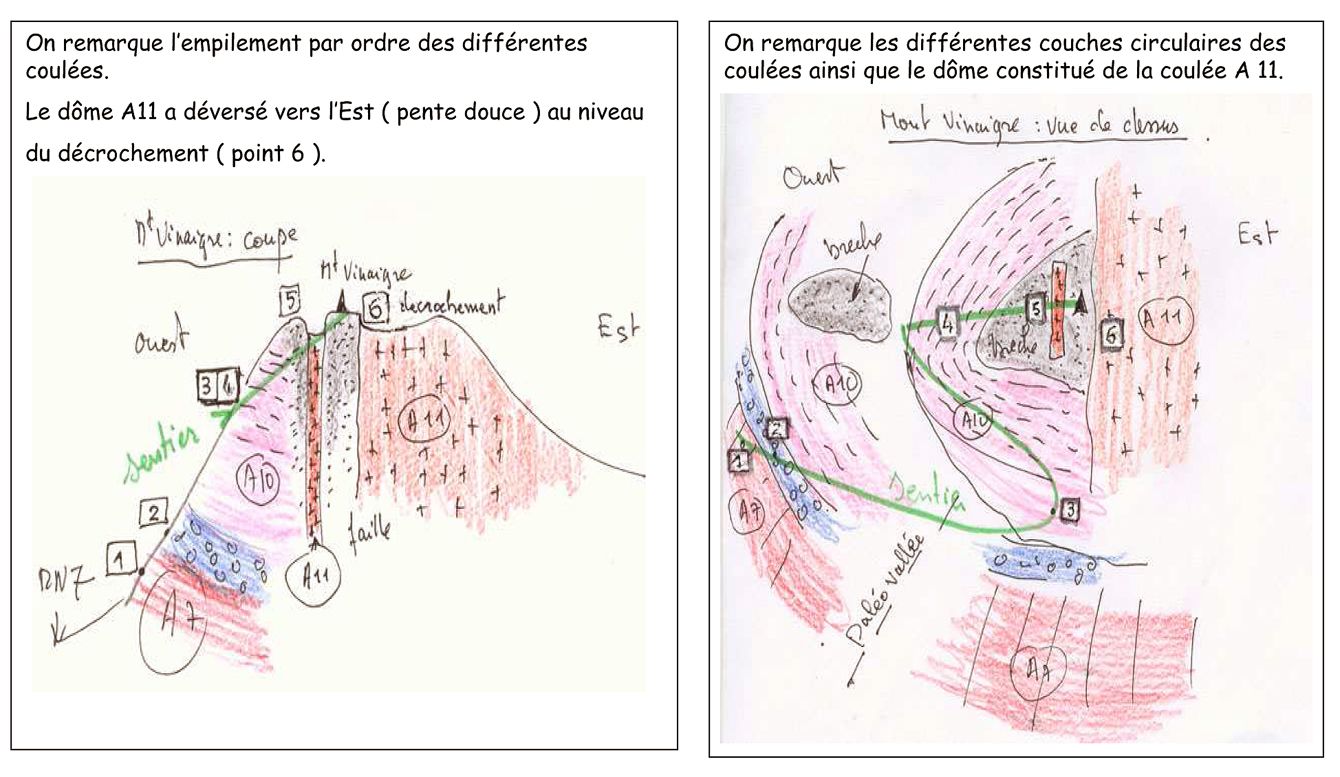 On remarque l'empilement par ordre des différentes
coulées.
Le dôme A11 a déversé vers l'Est ( pente douce ) au niveau
du décrochement ( point 6 ).
Mt Vinaigre : coupe
Mt Vinaigre
5
6
decrochement
Ouest
Est
3 4
A11
sentier
A10
2
faille
1
RN7
A11
A7
On remarque les différentes couches circulaires des
coulées ainsi que le dôme constitué de la coulée A 11.
Mont Vinaigre : vue de dessus
Ouest
Est
breche
5
4
6
A11
breche
A10
A10
2
1
Sentier
3
A7
Paléo vallée
A7